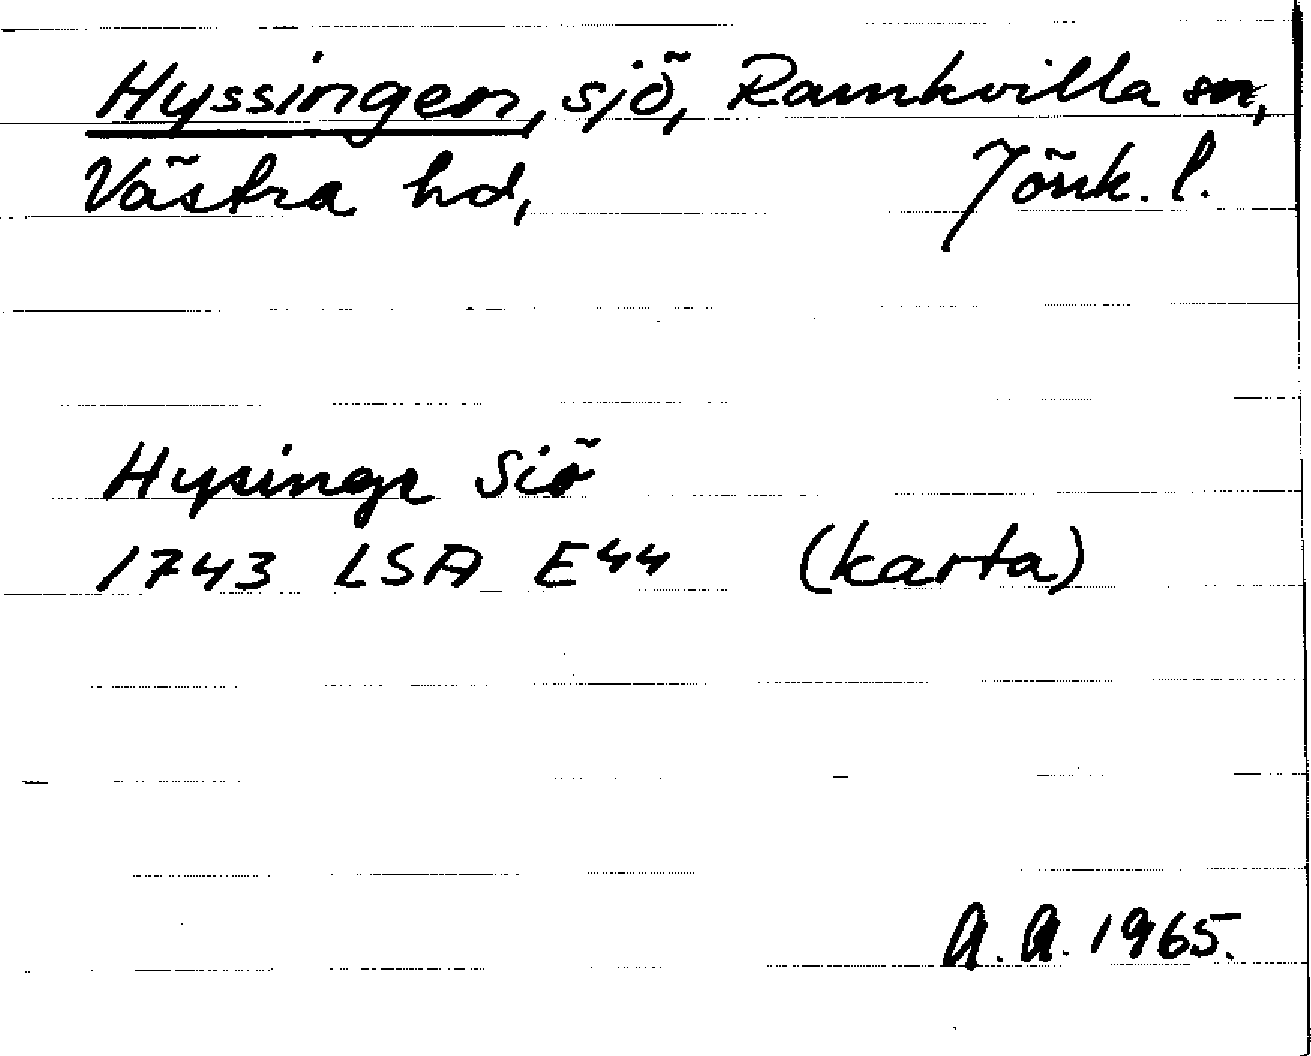 Hyssingen, sjö, Ramkvilla sn,
Västra hd, Jönk. l.
Hysinge Siö
1743 LSA E44 (karta)
A. A. 1965.